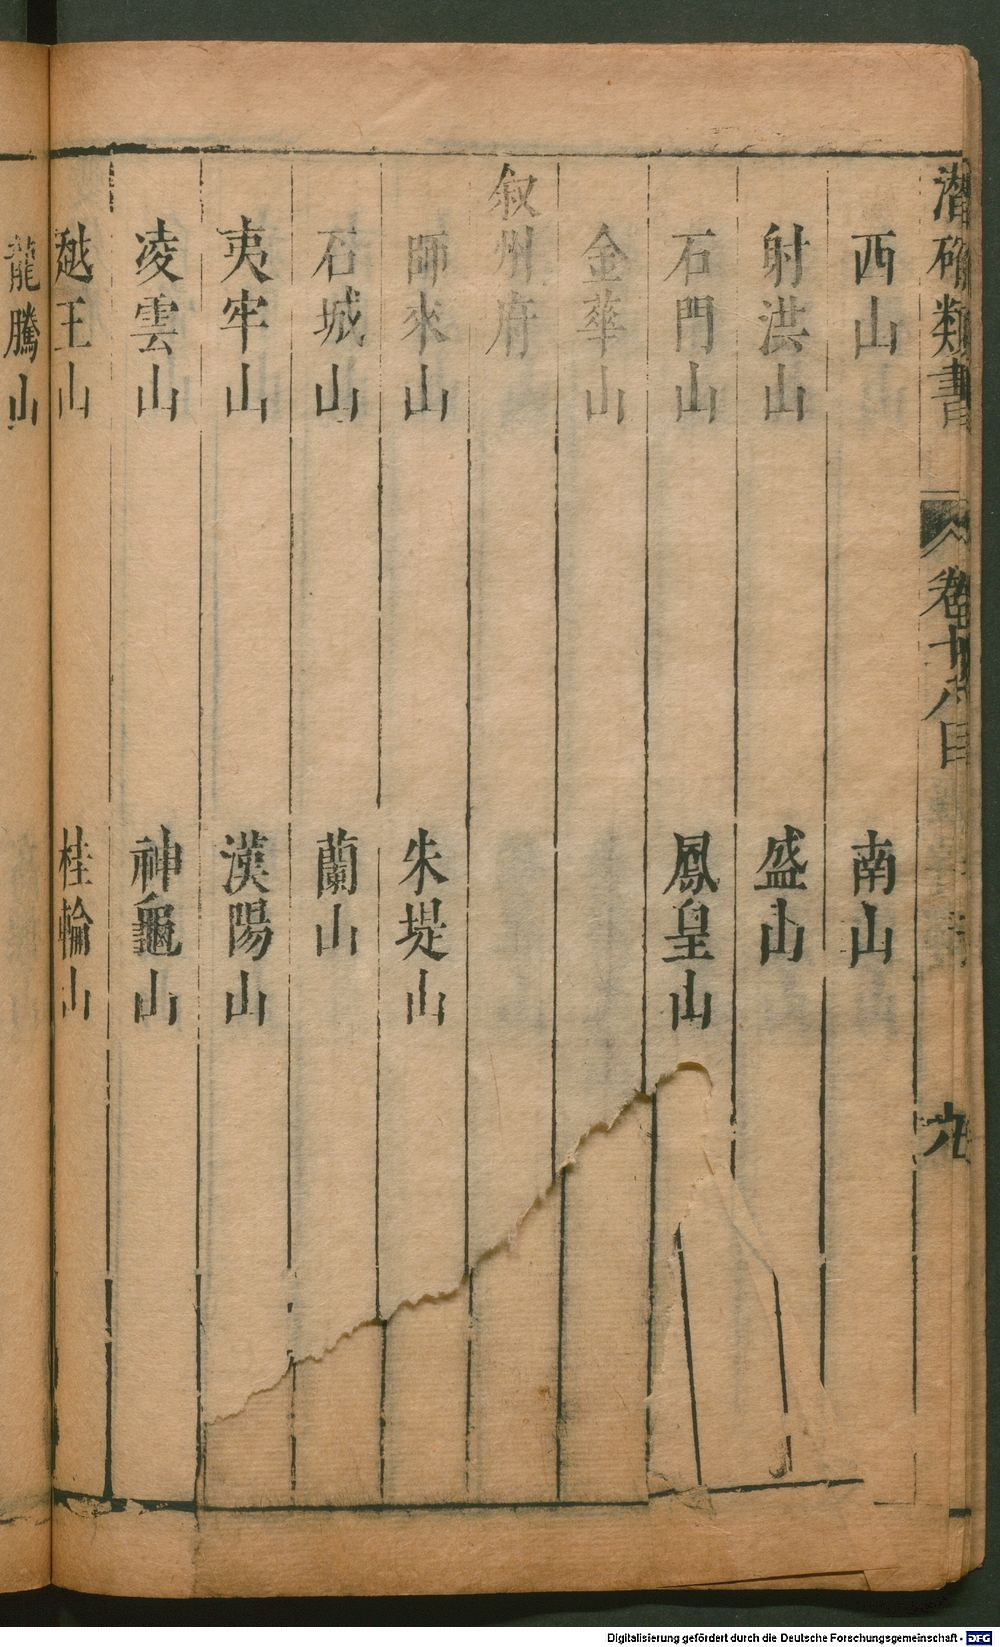 潛確類書 卷十八目 九
西山 南山
射洪山 盛山
石門山 鳳皇山
金華山
叙州府
師來山 朱堤山
石城山 蘭山
夷牢山 漢陽山
凌雲山 神龜山
越王山 桂輪山
龍騰山
Digitalisierung gefördert durch die Deutsche Forschungsgemeinschaft - DFG